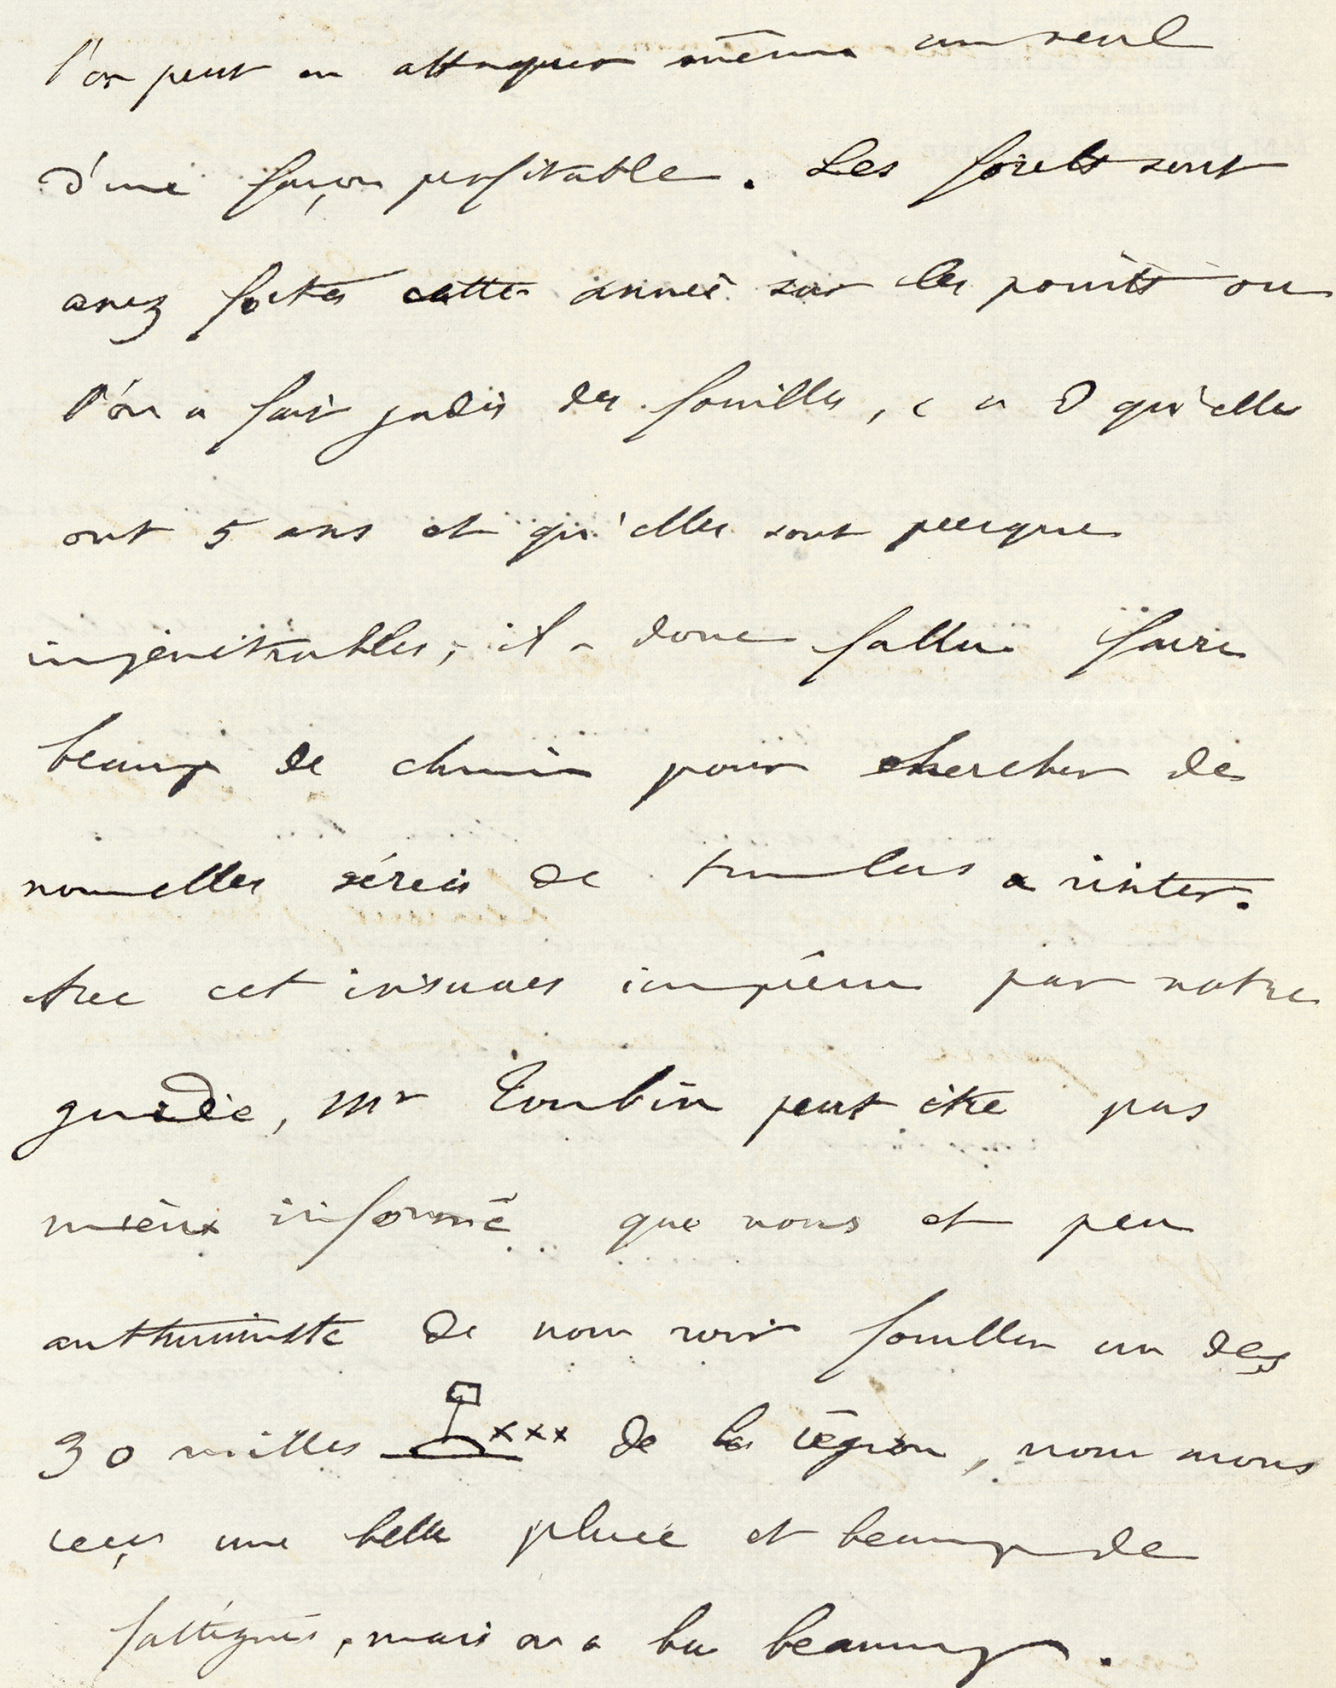 l'on peut en attaquer même un seul
d'une façon profitable. Les forêts sont
assez fortes cette année sur les points ou
l'on a fait jadis des fouilles, c a d qu'elles
ont 5 ans et qu'elles sont presque
impénétrables, il a donc fallu faire
beaucp de chemin pour chercher de
nouvelles séries de tumulus a visiter.
Avec cet insucces imprévu par notre
guide, Mr Toubin peut etre pas
mieux informé que nous et peu
de nous voir fouiller un des
30 milles xxx de la région, nous avons
reçu une belle pluie et beaucp de
fatigues, mais on a bu beaucoup.